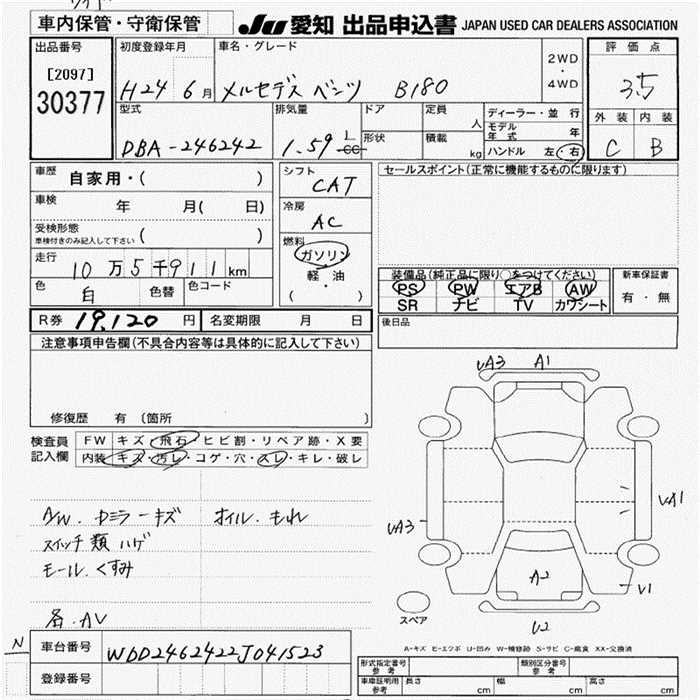 車内保管・守衛保管
JU 愛知 出品申込書 JAPAN USED CAR DEALERS ASSOCIATION
出品番号 初度登録年月 車名・グレード 2WD ・ 4WD 評価点
[2097]
30377
H24 6月 メルセデス ベンツ B180 3.5
型式 排気量 ドア 定員 人 ディーラー・並行 外装 内装
DBA-246242 1.59 L cc 形状 積載 kg モデル年式 年
ハンドル 左・右 C B
車歴 自家用・( )
シフト CAT
セールスポイント(正常に機能するものに限ります)
車検 年 月( 日)
冷房 AC
受検形態
車検付きのみ記入して下さい ( )
燃料 ガソリン
軽・油
( )
走行 10万5千911km
装備品(純正品に限り○をつけてください) 新車保証書
PS PW エアB AW 有・無
SR ナビ TV カワシート
色 白 色替 色コード
後日品
R券 19,120円 名変期限 月 日
注意事項申告欄(不具合内容等は具体的に記入して下さい)
修復歴 有 〔箇所
検査員 FW キズ・飛石・ヒビ割・リペア跡・X要
記入欄 内装 キズ・汚レ・コゲ・穴・スレ・キレ・破レ
UA3 A1
A/W. ドミラーキズ オイル. もれ
スイッチ類 ハゲ
モール. くすみ
各. AV
UA1
UA3
A2
U1
U2
スペア
A-キズ E-エクボ U-凹み W-補修跡 S-サビ C-腐食 XX-交換済
N
車台番号 WDD2462422J041523
登録番号
形式指定番号 参考 類別区分番号 参考
車庫証明用 参考 長さ cm 幅 cm 高さ cm